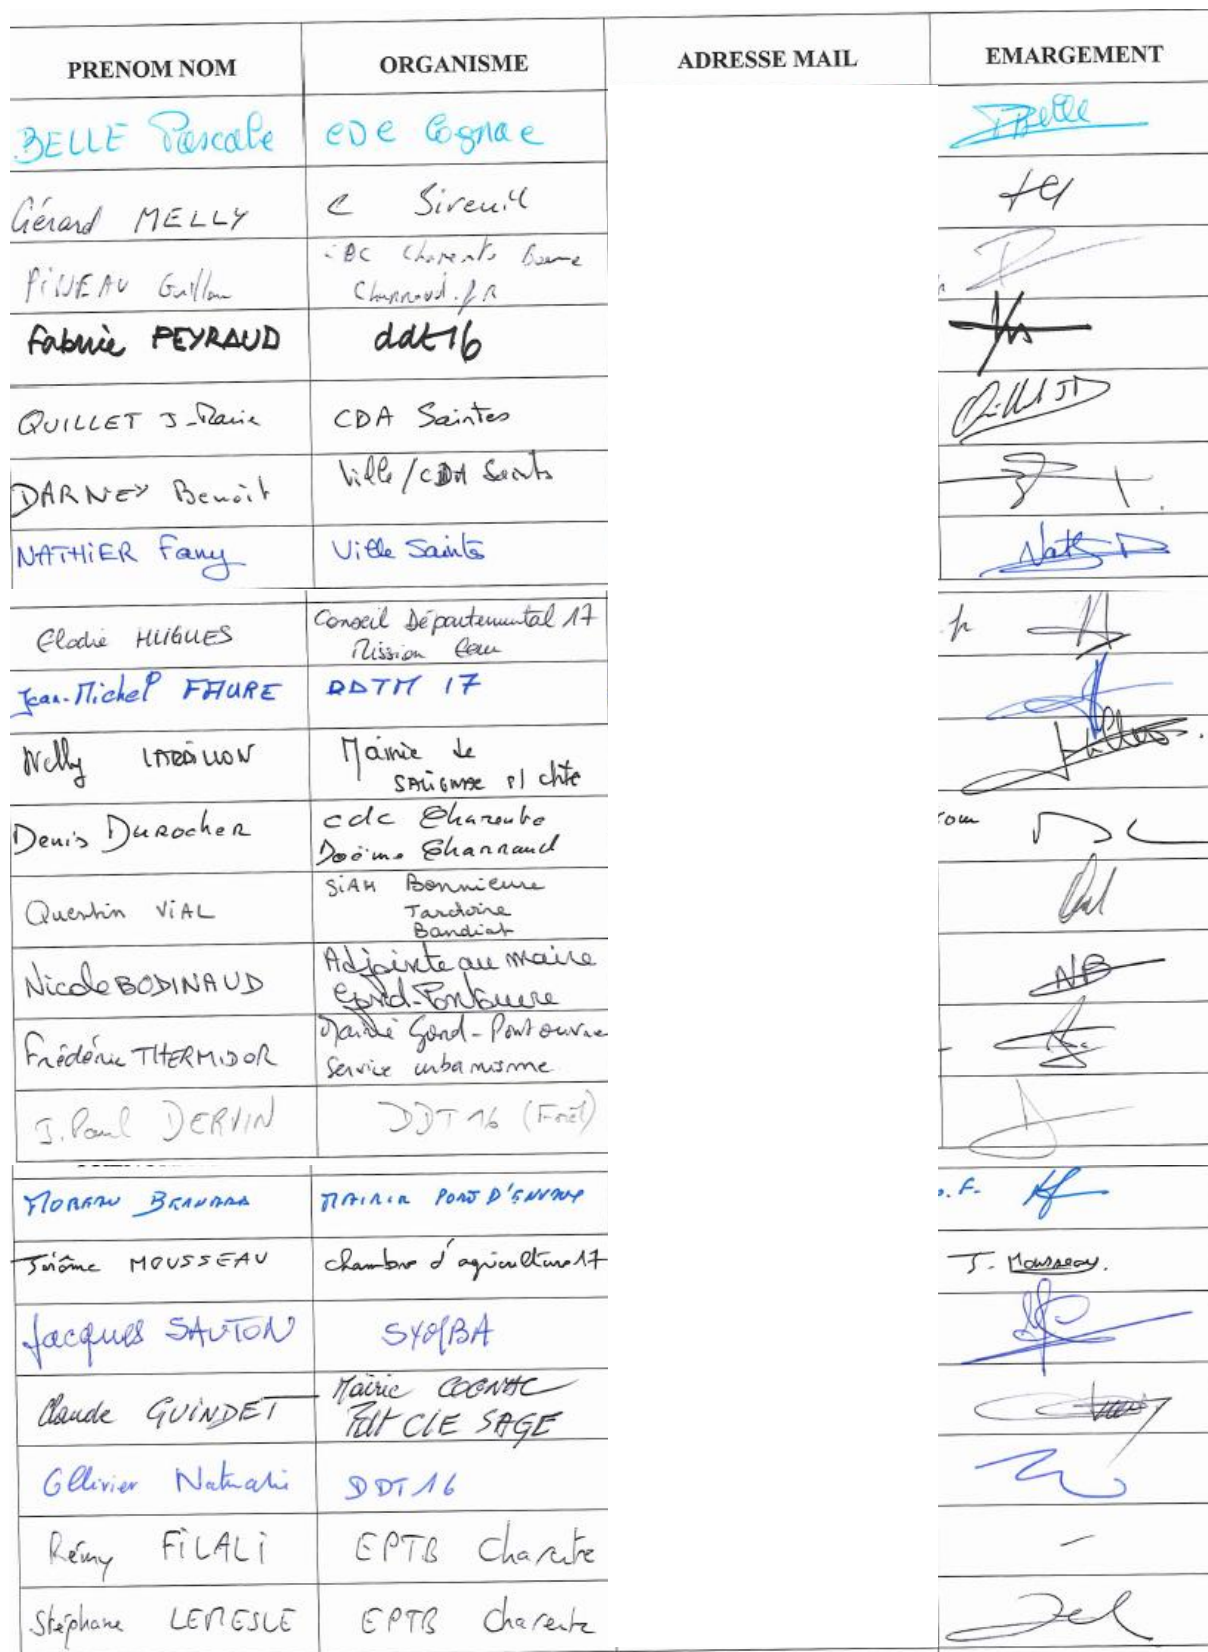 PRENOM NOM ORGANISME ADRESSE MAIL EMARGEMENT
BELLE Pascale CDC Cognac PBelle
Gérard MELLY C Sireuil
PINEAU Charente Boeme
Charraud
Fabrice PEYRAUD ddt16
QUILLET J-Marie CDA Saintes Quillet JM
DARNEY Benoît Ville/CDA Saintes
NATHIER Fany Ville Saintes
Elodie HUGUES Conseil Départemental 17
Mission Eau
Jean-Michel FAURE DDTM 17
Nelly Mairie de
SALIGNAC s/ chte
Denis DUROCHER cdc Charente
Boëme Charraud
Quentin VIAL SIAH Bonnieure
Tardoire
Bandiat
Nicole BODINAUD Adjointe au maire NB
Gond-Pontouvre
Frédéric THERMIDOR Mairie Gond-Pontouvre
Service urbanisme
J. Paul DERVIN DDT 16 (Forêt)
MOREAU BERNARD MAIRIE PORT D'ENVAUX
Jérôme MOUSSEAU chambre d'agriculture 17 J. Mousseau.
Jacques SAUTON SYGYBA
Claude GUINDET Mairie COGNAC
Pdt CLE SAGE
Ollivier Nathalie DDT 16
Rémy FILALI EPTB Charente -
Stéphane LEMESLE EPTB Charente